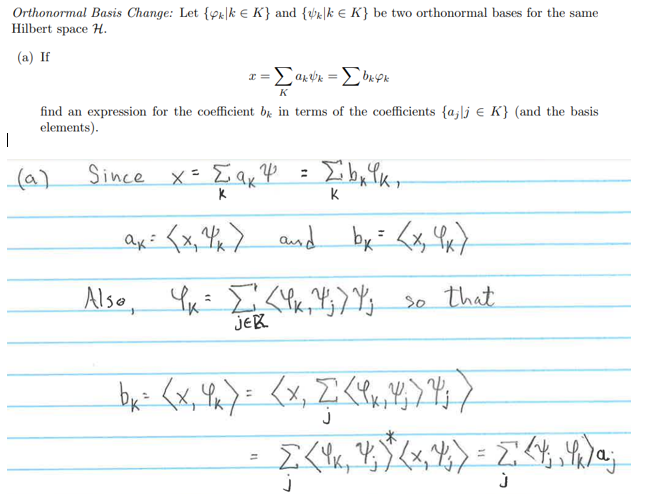 Orthonormal Basis Change: Let {φₖ|k ∈ K} and {ψₖ|k ∈ K} be two orthonormal bases for the same
Hilbert space ℋ.
(a) If
x = ∑_K aₖψₖ = ∑ bₖφₖ
find an expression for the coefficient bₖ in terms of the coefficients {aⱼ|j ∈ K} (and the basis
elements).
(a) Since x = ∑_K aₖψ = ∑_K bₖφₖ,
aₖ = ⟨x, ψₖ⟩ and bₖ = ⟨x, φₖ⟩
Also, φₖ = ∑_{j∈K} ⟨φₖ, ψⱼ⟩ψⱼ so that
bₖ = ⟨x, φₖ⟩ = ⟨x, ∑_j ⟨φₖ, ψⱼ⟩ψⱼ⟩
= ∑_j ⟨φₖ, ψⱼ⟩*⟨x, ψⱼ⟩ = ∑_j ⟨ψⱼ, φₖ⟩aⱼ